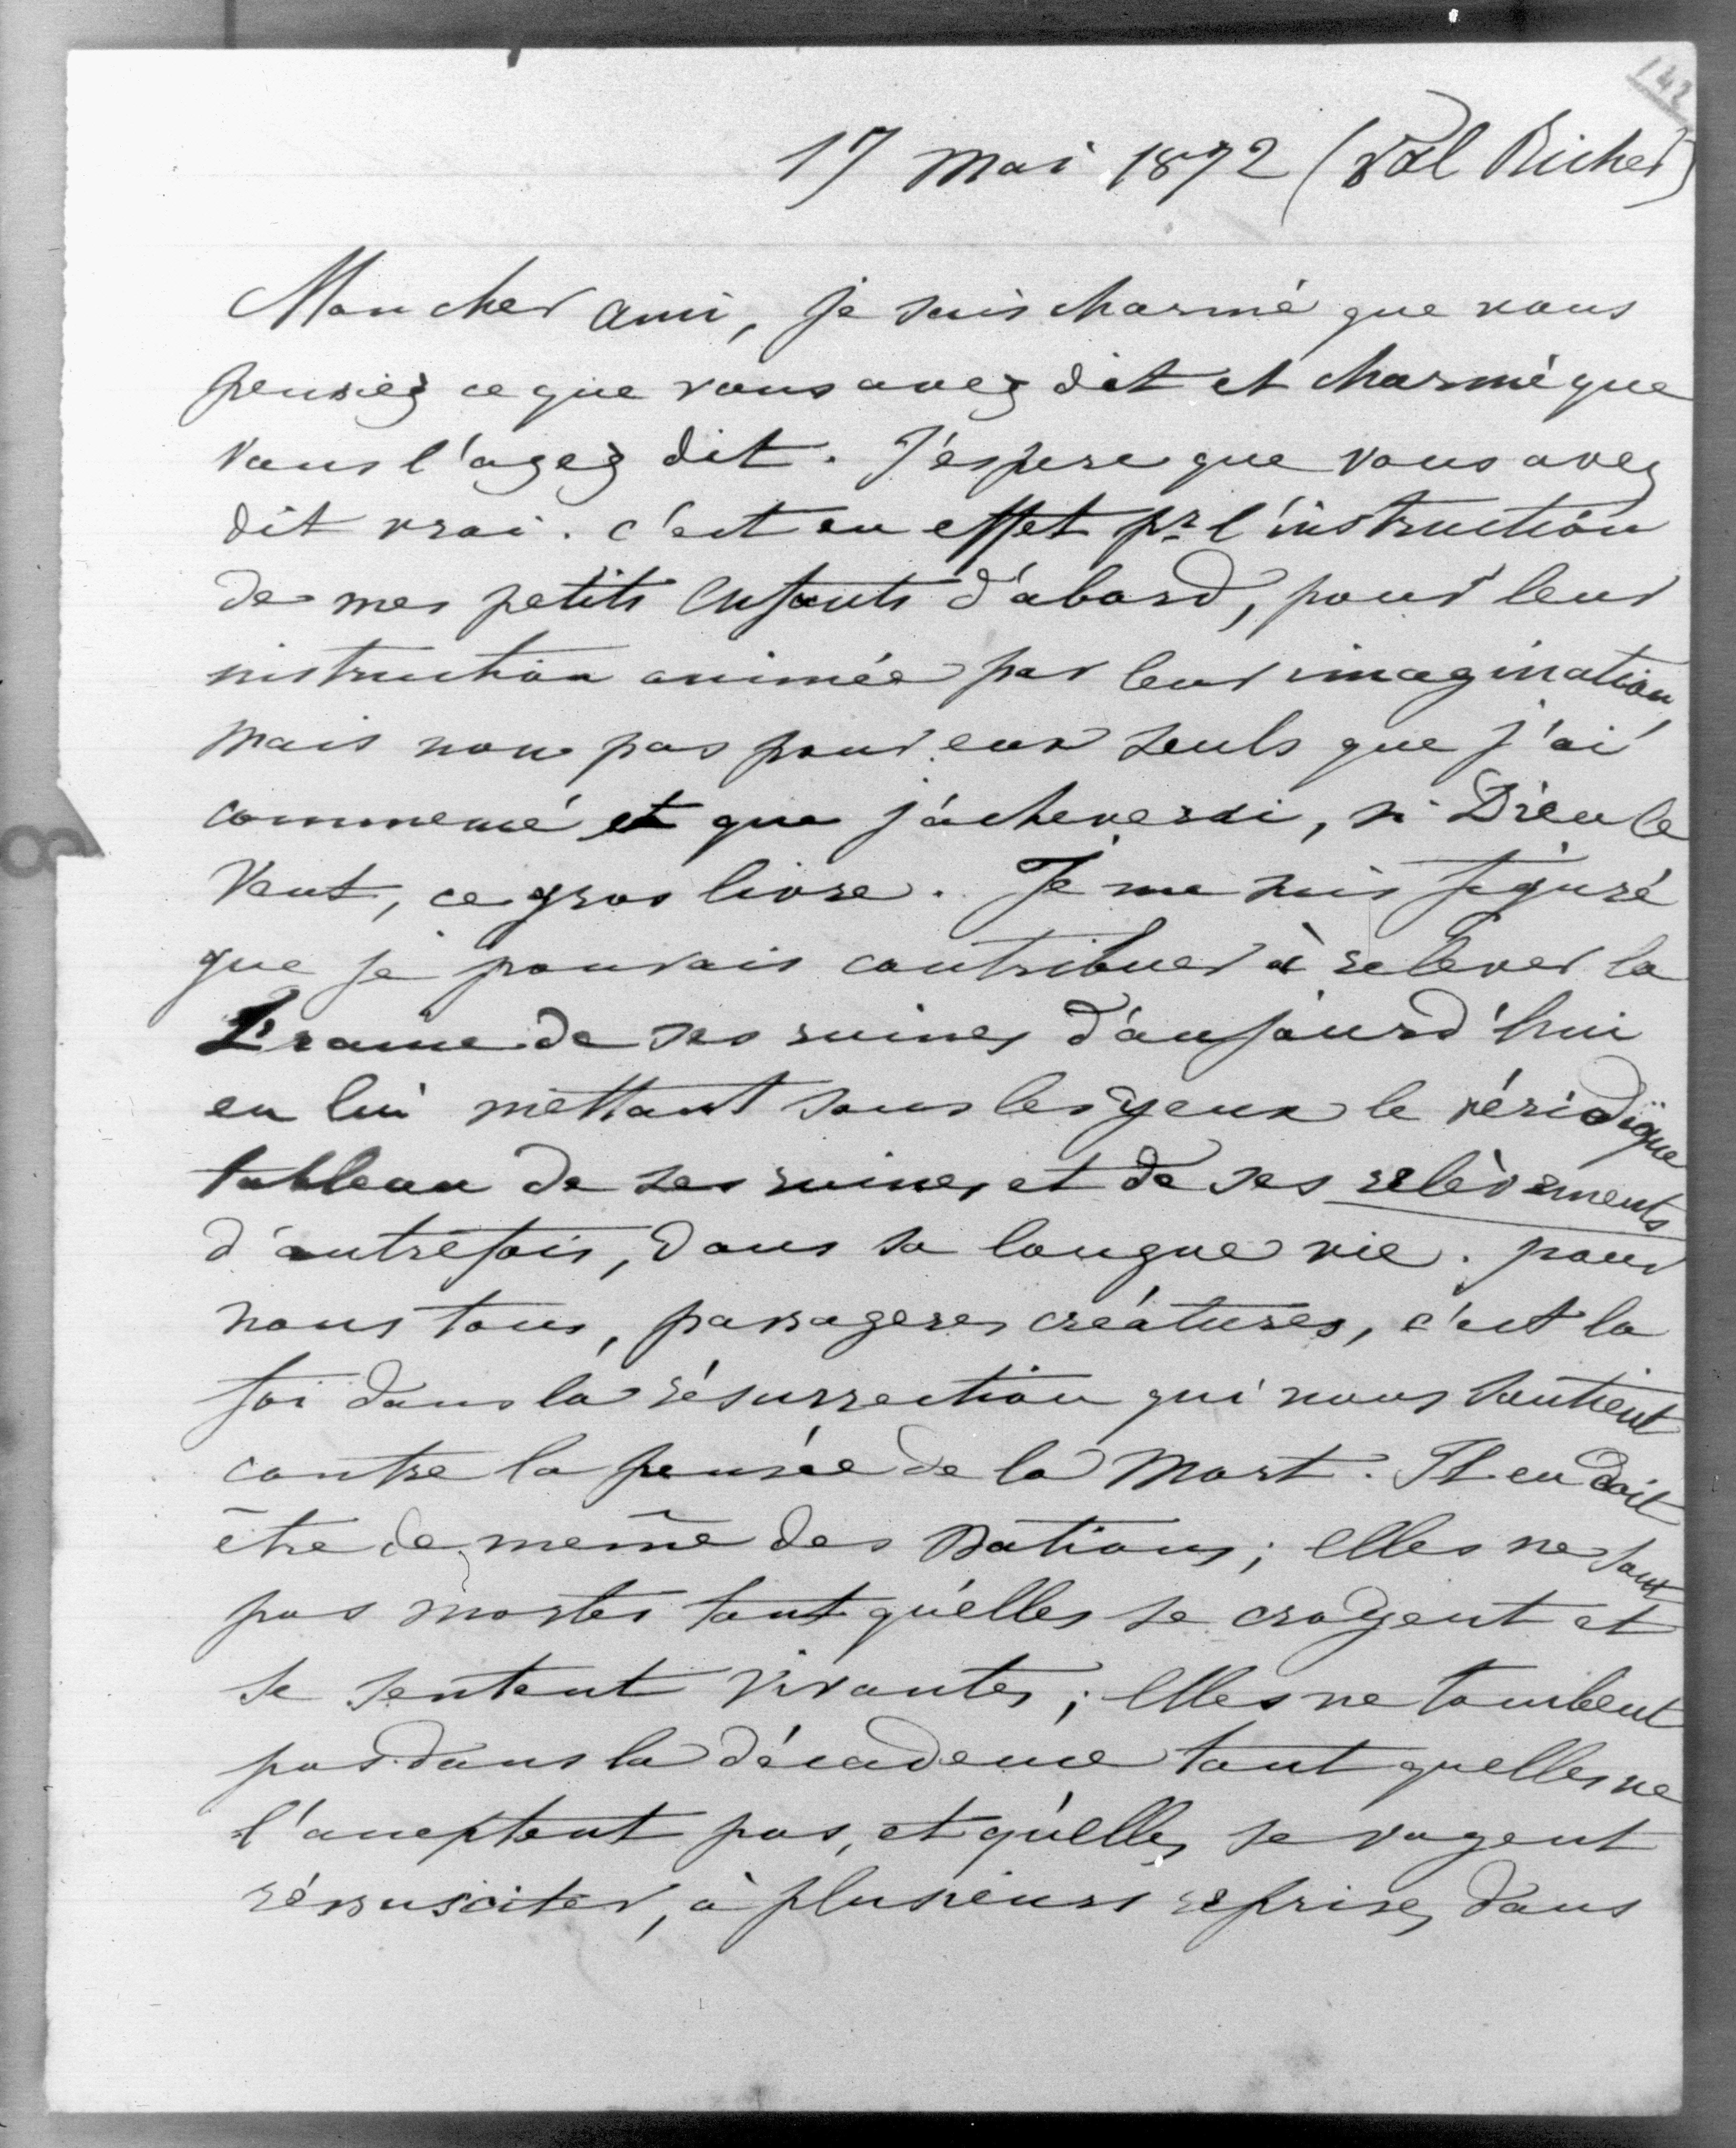 142
17 Mai 1872 (Val Richer)
Mon cher ami, je suis charmé que vous
pensiez ce que vous avez dit et charmé que
vous l'ayez dit. J'espere que vous avez
dit vrai. c'est en effet pr l'instruction
de mes petits enfants d'abord, pour leur
instruction animée par leur imagination
mais non pas pour eux seuls que j'ai
commencé et que j'acheverai, si Dieu le
veut, ce gros livre. Je me suis figuré
que je pouvais contribuer à relever la
France de ses ruines d'aujourd'hui
en lui mettant sous les yeux le véridique
tableau de ses ruines et de ses relèvements
d'autrefois, dans sa longue vie. pour
nous tous, passageres créatures, c'est la
foi dans la résurrection qui nous soutient
contre la pensée de la mort. Il en doit
être de même des Nations; elles ne sont
pas mortes tant qu'elles se croyent et
se sentent vivantes; elles ne tombent
pas dans la décadence tant quelles ne
l'acceptent pas, et qu'elles se voyent
réssusciter, à plusieurs reprises, dans